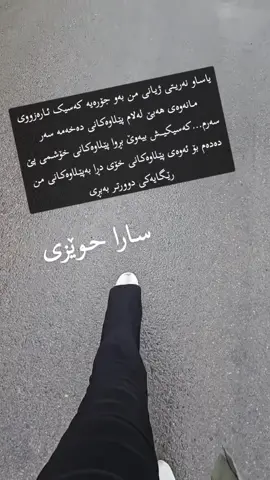 یاساو نەریتی ژیانی من بەو جۆرەیە کەسیک ئارەزووی
مانەوەی هەبێ لەلام پێڵاوەکانی دەخەمە سەر
سەرم...کەسیکیش بیەوێ بڕوا پێڵاوەکانی خۆشمی پێ
دەدەم بۆ ئەوەی پێڵاوەکانی خۆی دڕا بەپێڵاوەکانی من
رێگایەکی دوورتر بەبڕی
سارا حوێزی